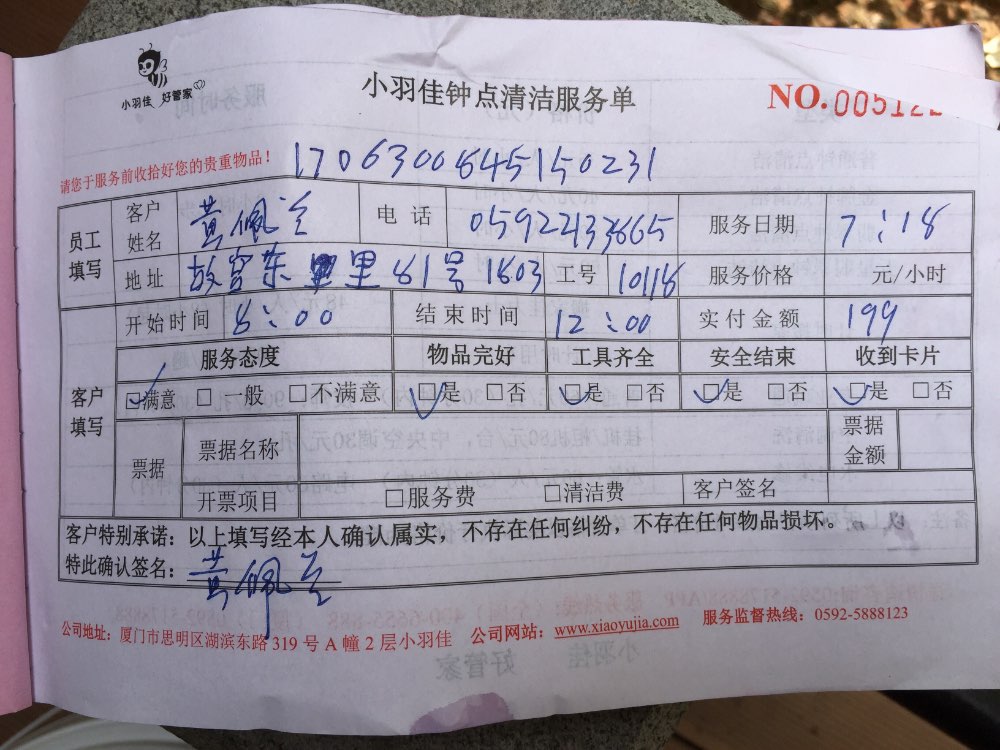 小羽佳 好管家
小羽佳钟点清洁服务单
NO.005122
请您于服务前收拾好您的贵重物品！
17063008645150231
员工填写 客户姓名 黄佩兰 电话 05922133665 服务日期 7:18
地址 故宫东里 81号 1803 工号 10118 服务价格 元/小时
开始时间 8:00 结束时间 12:00 实付金额 199
客户填写 服务态度 物品完好 工具齐全 安全结束 收到卡片
☑满意 □一般 □不满意 ☑是 □否 ☑是 □否 ☑是 □否 ☑是 □否
票据 票据名称 票据金额
开票项目 □服务费 □清洁费 客户签名
客户特别承诺：以上填写经本人确认属实，不存在任何纠纷，不存在任何物品损坏。
特此确认签名：黄佩兰
公司地址：厦门市思明区湖滨东路 319 号 A 幢 2 层小羽佳 公司网站：www.xiaoyujia.com 服务监督热线：0592-5888123